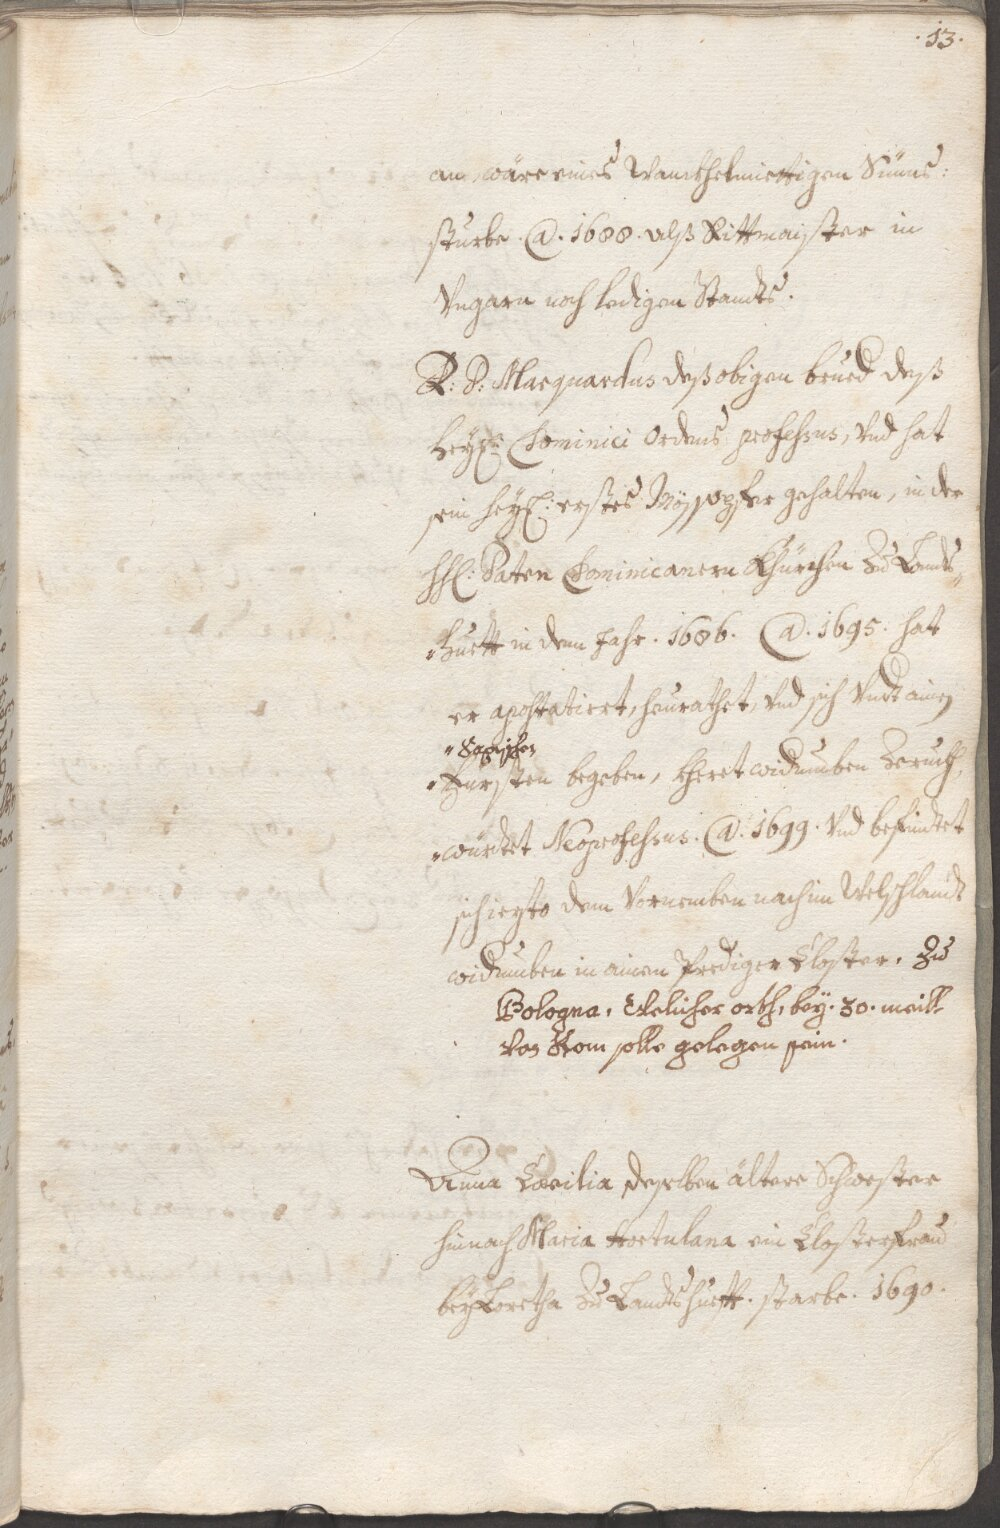 .13.
an, wäre eines Wanckhelmiettigen Sünns:
sturbe. @. 1688. alß Rittmaister in
Vngarn noch ledigen Standts.
R: P: Marquardus deß obigen brued deß
heyl: Dominici Ordens professus, vnd hat
sein heyl: erstes Mössopfer gehalten, in der
hhl: Paten Dominicanern Khürchen Zu Landts„
„huett in dem Jahr. 1686. @. 1695. hat
er apostatiert, heurathet, vnd sich Vndt ainen
„
„Fürsten begeben, kheret widumben Zeruckh,
„würdet Neoprofessus. @. 1699. vnd befündtet
sich iezto dem Vernemben nach im Welschlandt
widumben in ainem Prediger Closter. Zu
Bologna, Welicher orth, bey. 30. meill
von Rom solle gelegen sein.
Anna Cæcilia desselben ältere Schwester
hinnach Maria Hortulana ein Closterfrau
bey Loretha Zu Landtshuett. starbe. 1690.